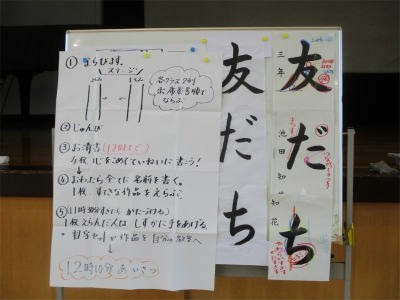 ① ならびます。
ステージ
各クラス2列
出席番号順で
ならぶ
② じゅんび
③ お清書(12時まで)
4枚 心をこめていねいに書こう!
④ おわったら全てに名前を書く。
1枚 すてきな作品をえらぶ
⑤ 11時50分すぎたら かたづける。
1枚えらんだ人は しずかに手をあげる。
12時10分 あいさつ
友だち
友だち
三年
池田知花